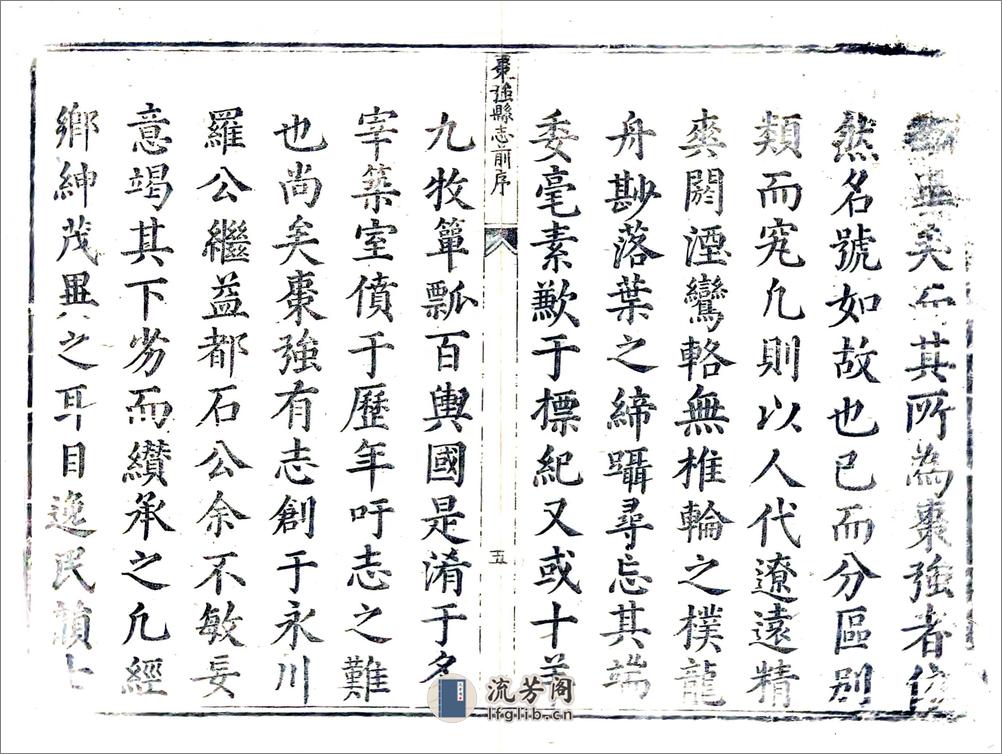 矣而其所為棗強者俊
然名號如故也已而分區別
類而究凡則以人代遼遠精
爽閼湮鸞輅無椎輪之樸龍
舟尠落葉之締躡尋忘其端
委毫素歉于摽紀又或十羊
棗強縣志前序
五
九牧簞瓢百輿國是淆于多
宰築室僨于歷年吁志之難
也尚矣棗強有志創于永川
羅公繼益都石公余不敏妄
意竭其下劣而纘承之凡經
鄉紳茂異之耳目逸民顓士
流芳阁
lfglib.cn